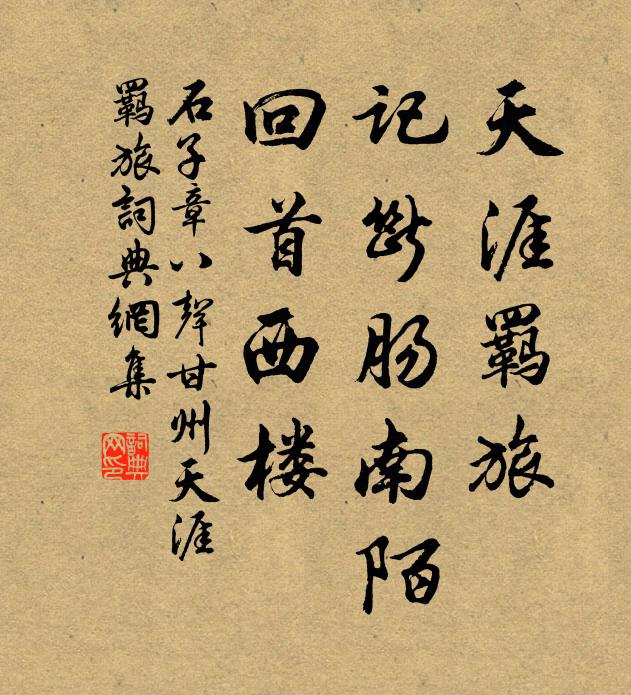 天涯羁旅
记断肠南陌
回首西楼
石子章八聲甘州天涯
羈旅詞典網集
詞典网印